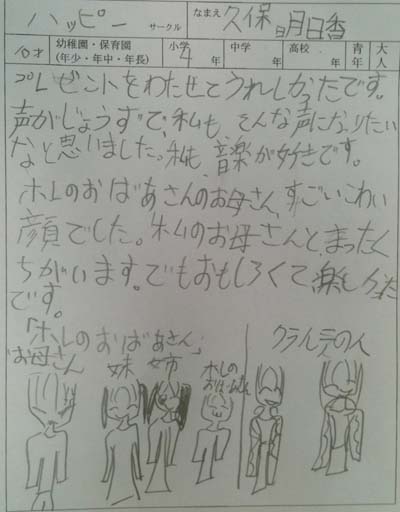 ハッピー サークル なまえ 久保 明日香
10才 幼稚園・保育園 (年少・年中・年長) 小学 4 年 中学 年 高校 年 青年 大人
プレゼントをわたせてうれしかったです。
声がじょうずで、私も、そんな声になりたい
なと思いました。私も、音楽が好きです。
ホレのおばあさんのお母さん、すごいこわい
顔でした。私のお母さんと、まったく
ちがいます。でもおもしろくて楽しかった
です。
「ホレのおばあさん」
お母さん 妹 姉 ホレのおばあさん クラルテの人